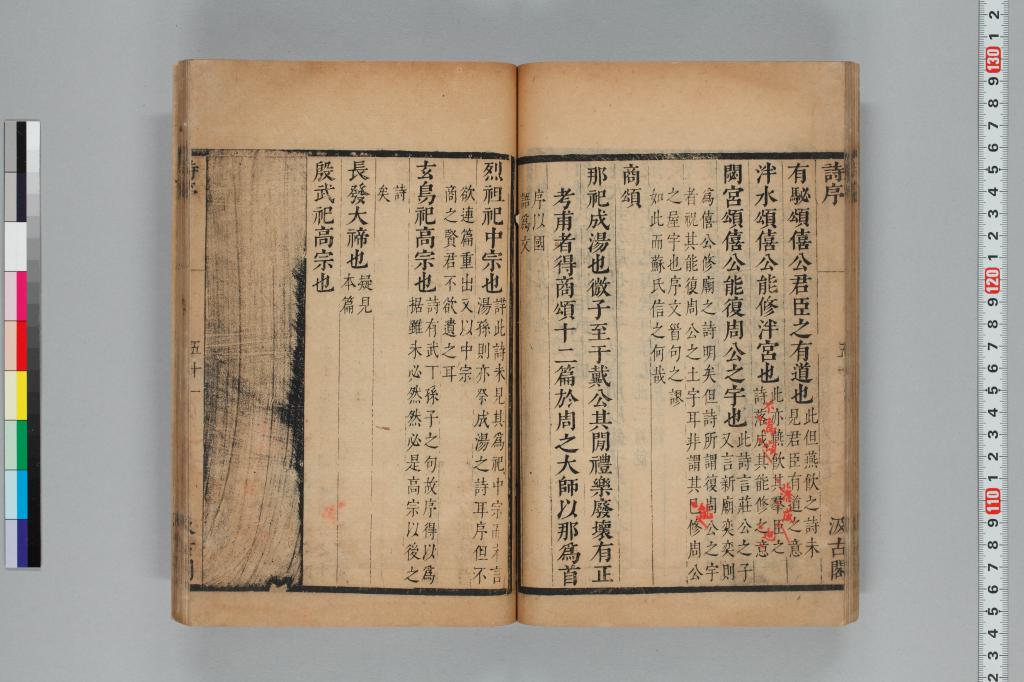 詩序
有駜頌僖公君臣之有道也此但燕飲之詩未
見君臣有道之意
泮水頌僖公能修泮宮也此亦燕飲其羣臣之
詩落成其能修之意
閟宮頌僖公能復周公之宇也此詩言莊公之子
又言新廟奕奕則
爲僖公修廟之詩明矣但詩所謂復周公之宇
者祝其能復周公之土宇耳非謂其已修周公
之屋宇也序文首句之謬
如此而蘇氏信之何哉
商頌
那祀成湯也微子至于戴公其閒禮樂廢壞有正
考甫者得商頌十二篇於周之大師以那爲首
序以國
語爲文
烈祖祀中宗也詳此詩未見其爲祀中宗而末言
湯孫則亦祭成湯之詩耳序但不
欲連篇重出又以中宗
商之賢君不欲遺之耳
玄鳥祀高宗也詩有武丁孫子之句故序得以爲
据雖未必然然必是高宗以後之
詩
矣
長發大禘也疑見
本篇
殷武祀高宗也
五十一
汲古閣